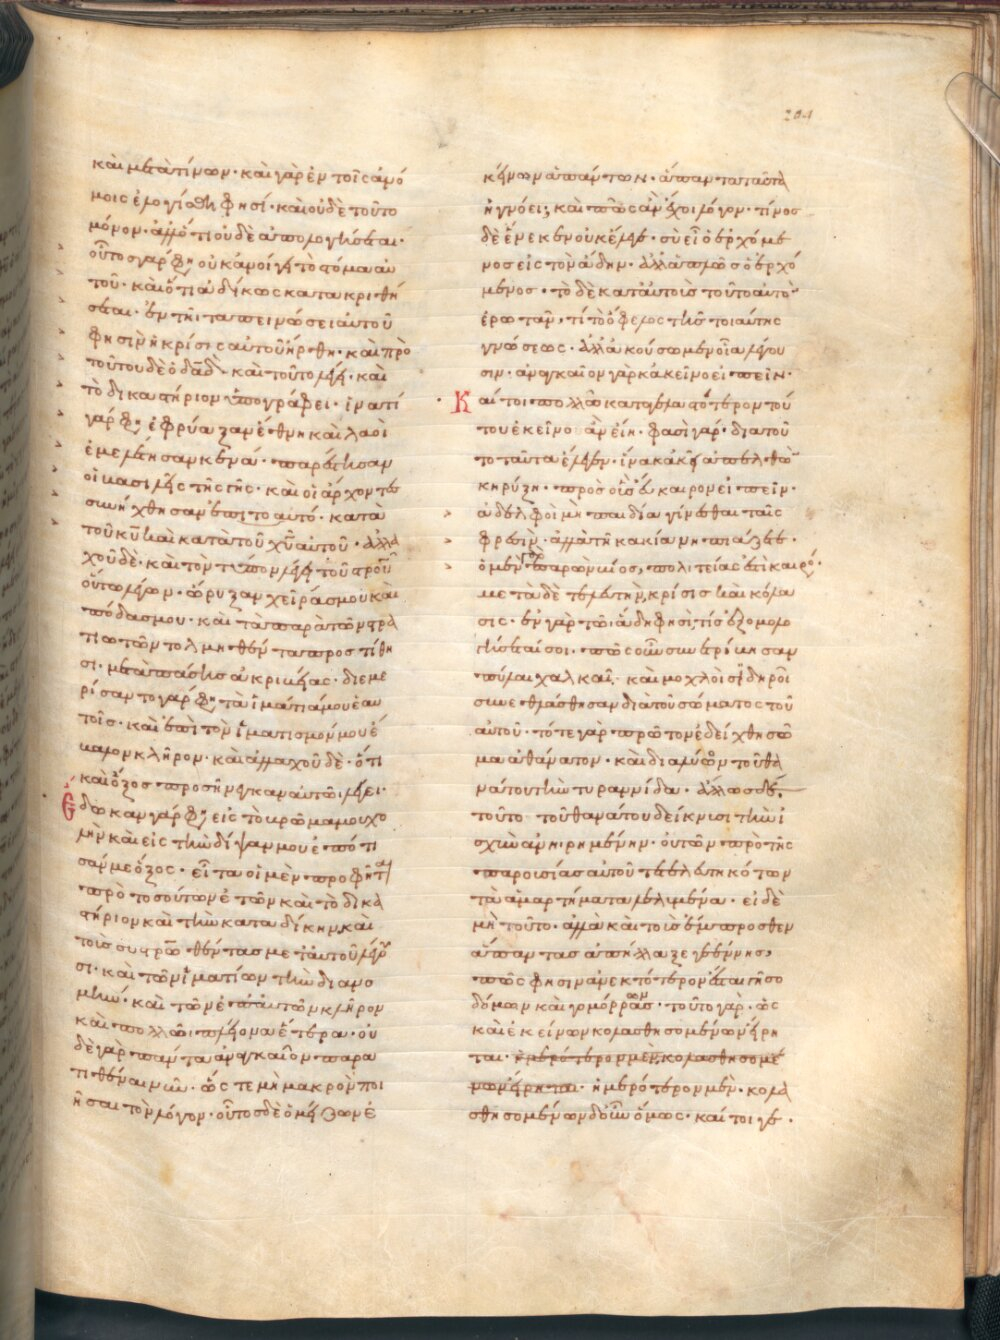 204
καὶ μετὰ τίνων· καὶ γὰρ ἐν τοῖς ἀνό
μοις ἐλογίσθη φησί· καὶ οὐδὲ τοῦτο
μόνον· ἀλλ' ὅτι οὐδὲ ἀπολογήσεται·
οὗτος γάρ φη οὐκ ἀνοίγει τὸ στόμα αὐ
τοῦ· καὶ ὅτι ἀδίκως κατακριθή
σεται· ἐν τῆι ταπεινώσει αὐτοῦ
φησιν ἡ κρίσις αὐτοῦ ἤρθη· καὶ πρὸ
τούτου δὲ ὁ δᾱδ· καὶ τοῦτο λέγει· καὶ
τὸ δικαστήριον ὑπογράφει· ἱνατί
γάρ φη ἐφρύαξαν ἔθνη καὶ λαοὶ
ἐμελέτησαν κενά· παρέστησαν
οἱ βασιλεῖς τῆς γῆς· καὶ οἱ ἄρχοντες
συνήχθησαν ἐπιτοαυτό· κατὰ
τοῦ κ̅υ̅ καὶ κατὰ τοῦ χ̅υ̅ αὐτοῦ· ἀλλα
χοῦ δὲ· καὶ τὸν τύπον λέγει τοῦ στρ̅ο̅υ̅
οὕτω λέγων· ὤρυξαν χεῖράς μου καὶ
πόδας μου· καὶ τὰ παρὰ τῶν στρα
τιωτῶν τολμηθέντα προστίθη
σι· μετὰ πάσης ἀκριβείας· διεμε
ρίσαντο γάρ φη τὰ ἱμάτιά μου ἑαυ
τοῖς· καὶ ἐπὶ τὸν ἱματισμόν μου ἔ
βαλον κλῆρον· καὶ ἀλλαχοῦ δὲ· ὅτι
καὶ ὄξος προσήνεγκαν αὐτῶ λέγει·
ἔδωκαν γάρ φη εἰς τὸ βρῶμά μου χο
λὴν καὶ εἰς τὴν δίψαν μου ἐπότι
σάν με ὄξος· εἶτα οἱ μὲν προφῆται
πρὸ τοσούτων ἐτῶν καὶ τὸ δικα
στήριον καὶ τὴν καταδίκην, καὶ
τοὺς σ̅ρ̅ωθέντας μετ' αὐτοῦ λέγου
σι· καὶ τῶν ἱματίων τὴν διανο
μὴν· καὶ τῶν ἐπ' αὐτῶν κλῆρον
καὶ πολλῶ πλείονα ἕτερα· οὐ
δὲ γὰρ πάντα ἀναγκαῖον παρα
τιθέναι νῦν· ὥστε μὴ μακρὸν ποι
ῆσαι τὸν λόγον· οὗτος δὲ ὁ μείζων ἐ
κείνων ἁπάντων· ἅπαντα ταῦτα
ἠγνόει; καὶ πῶς ἂν ἔχοι λόγον· τίνος
δὲ ἕνεκεν οὐκ ἔλεγε· σὺ εἶ ὁ ἐρχόμε
νος εἰς τὸν ἅδην· ἀλλὰ ἁπλῶς ὁ ἐρχό
μενος· τὸ δὲ κατ' αὐτοὺς τοῦτο αὐτὸ
ἐρωτᾶν, τί τὸ ὄφελος τῆς τοιαύτης
γνώσεως· ἀλλ' ἀκούσωμεν οἷα λέγου
σιν· ἀναγκαῖον γὰρ κἀκεῖνο εἰπεῖν·
Καίτοι πολλῶ καταγελαστότερον τού
του ἐκεῖνο ἂν εἴη· φασὶ γάρ· διατοῦ
το ταῦτα ἔλεγεν· ἵνα κἀκεῖ ἀπελθὼν
κηρύξη· πρὸς οὓς εὔκαιρον εἰπεῖν·
ἀδελφοὶ μὴ παιδία γίνεσθαι ταῖς
φρεσὶν· ἀλλὰ τῆ κακία νηπιάζετε·
ὁ μὲν γὰρ παρὼν βίος, πολιτείας ἐστὶ καιρός·
μετὰ δὲ τελευτὴν, κρίσις καὶ κόλα
σις· ἐν γὰρ τῶ ἅδη φησὶ, τίς ἐξομολο
γήσεταί σοι· πῶς οὖν συνετρίβησαν
πύλαι χαλκαῖ· καὶ μοχλοὶ σιδηροῖ
συνεθλάσθησαν διὰ τοῦ σώματος τοῦ
αὐτοῦ· τότε γὰρ πρῶτον ἐδείχθη σῶ
μα ἀθάνατον· καὶ διαλύον τοῦ θα
νάτου τὴν τυραννίδα· ἄλλως δὲ,
τοῦτο τοῦ θανάτου δείκνυσι τὴν ἰ
σχὺν ἀνηρημένην· οὐ τῶν πρὸ τῆς
παρουσίας αὐτοῦ τετελευτηκότων
τὰ ἁμαρτήματα λελυμένα· εἰ δὲ
μὴ τοῦτο· ἀλλὰ καὶ τοὺς ἔμπροσθεν
ἅπαντας ἀπήλλαξε γεέννης,
πῶς φησιν ἀνεκτότερον ἔσται γῆ σο
δόμων καὶ γομόρρων· τοῦτο γὰρ· ὡς
καὶ ἐκείνων κολασθησομένων εἴρη
ται· ἡμερότερον μὲν, κολασθησομέ
νων εἴρηται· ἡμερότερον μὲν· κολα
σθησομένων δ' οὖν ὅμως· καίτοι γε·